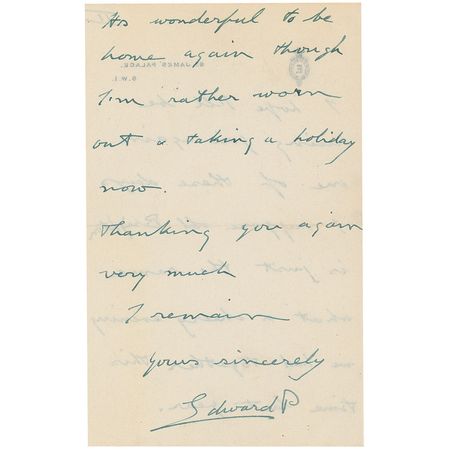 Its wonderful to be
home again though
I'm rather worn
out & taking a holiday
now.
Thanking you again
very much
I remain
Yours sincerely
Edward P
ST. JAMES' PALACE,
S.W.1.